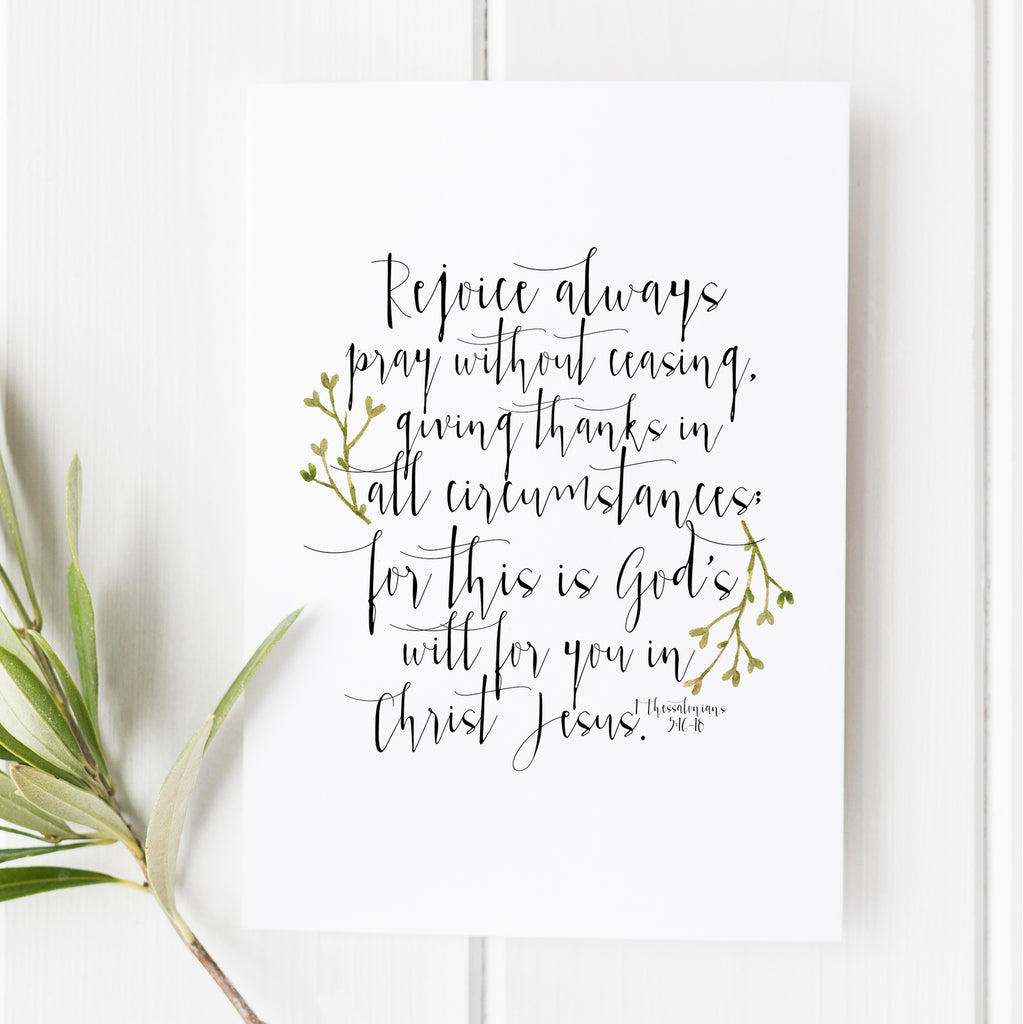 Rejoice always
pray without ceasing,
giving thanks in
all circumstances;
for this is God's
will for you in
Christ Jesus.
1 Thessalonians
5:16-18